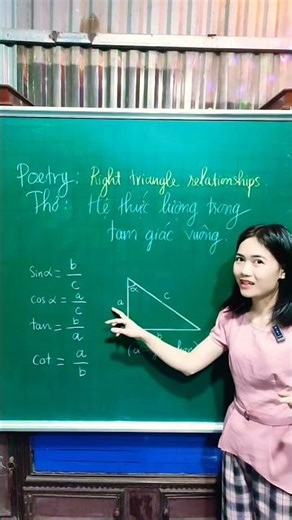 Poetry: Right triangle relationships.
Thơ: Hệ thức lượng trong
tam giác vuông.
Sinα = b/c
cosα = a/c
tan = b/a
cot = a/b
α
a
c
b